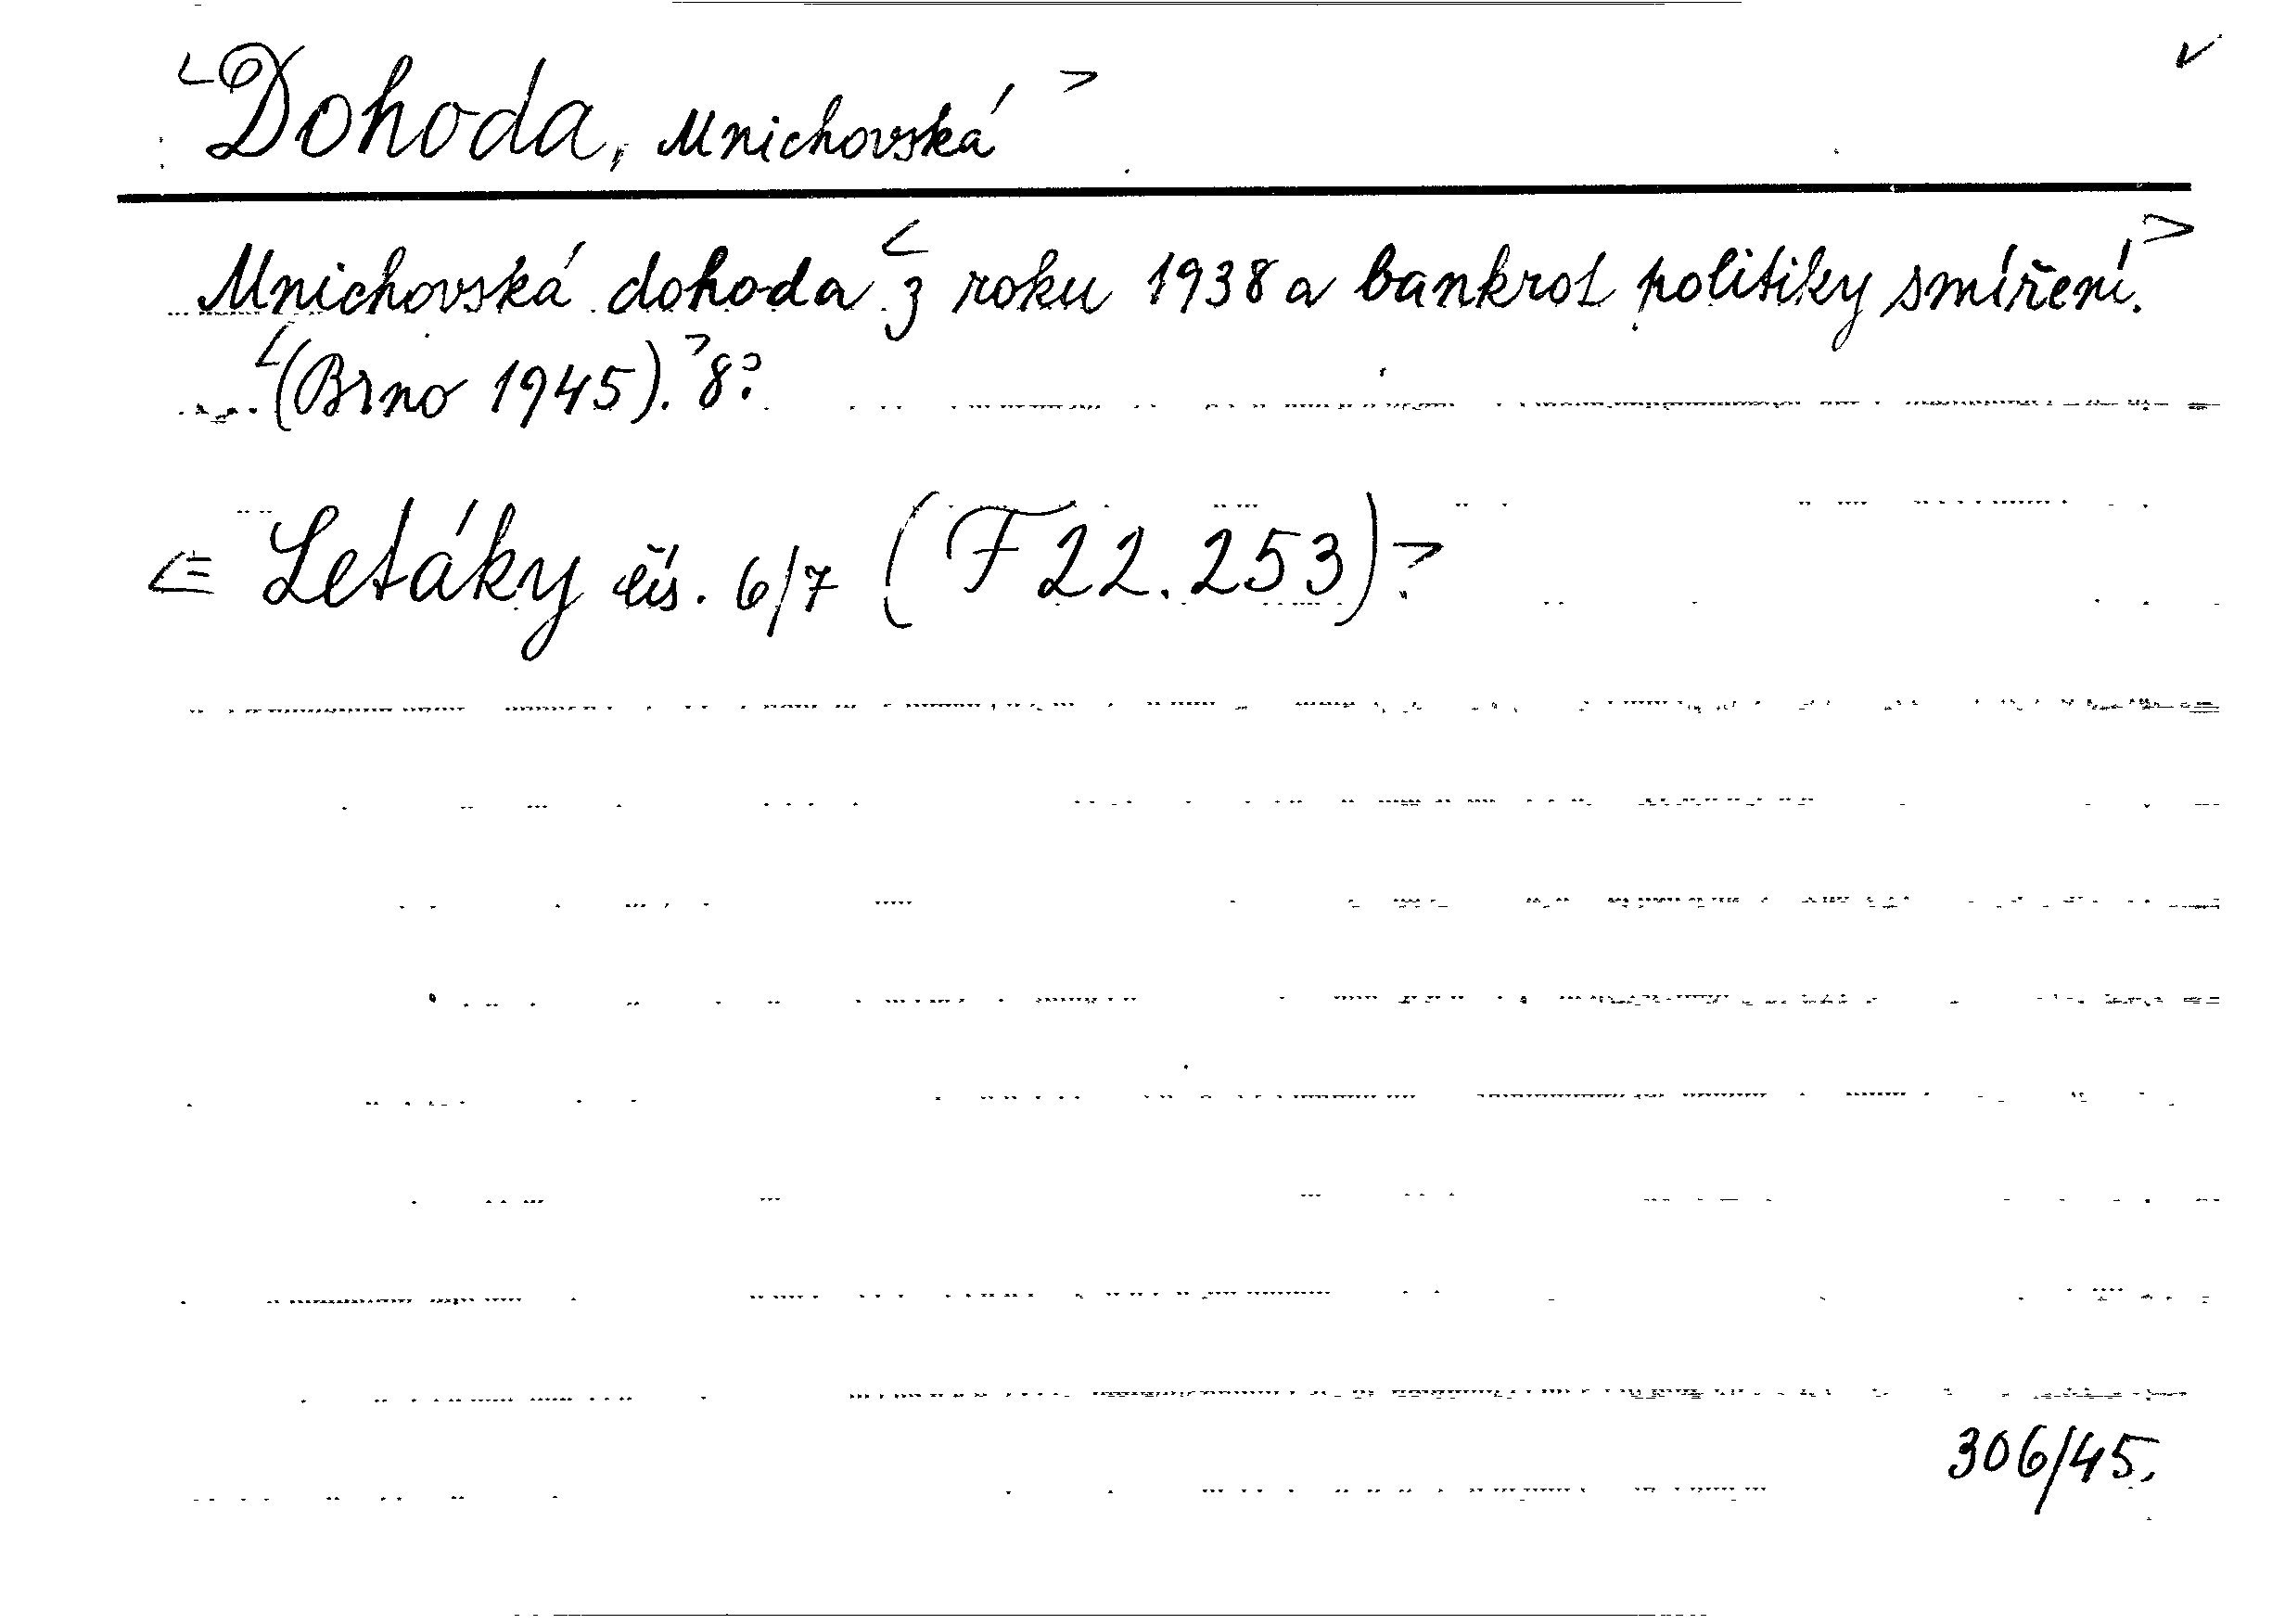 <Dohoda, Mnichovská>
Mnichovská dohoda <z roku 1938 a bankrot politiky smíření.>
<(Brno 1945).> 8°.
<= Letáky čís. 6/7 (F 22.253)>.
306/45.